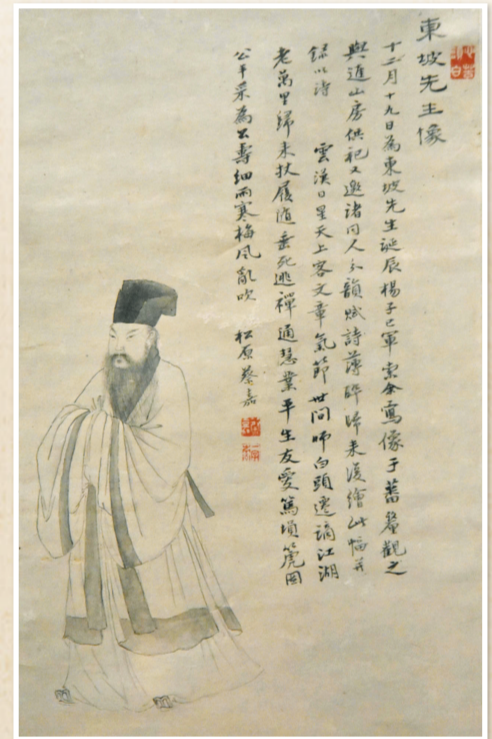 東坡先生像
十二月十九日為東坡先生誕辰楊子已軍索余寫像于舊馨觀之
與進山房供祀又邀諸同人分韻賦詩薄醉歸來復繪此幅并
錄以詩 雲漢日星天上客文章氣節世間師白頭遷謫江湖
老萬里歸來扶履隨垂死逃禪通慧業平生友愛篤塤篪因
公手采為公壽細雨寒梅風亂吹 松原蔡嘉